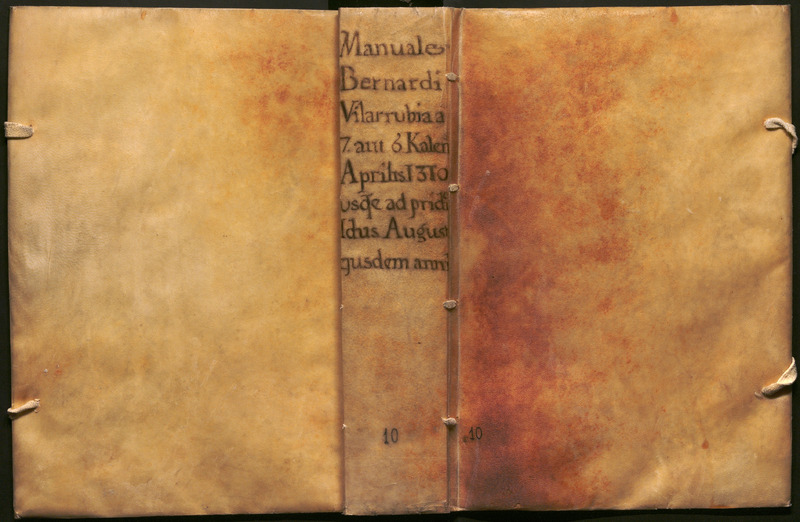 Manuale
Bernardi
Vilarrubia a
7. aut 6 Kalen
Aprilis 1310
usqe ad prid
Idus August
ejusdem anni
10
10